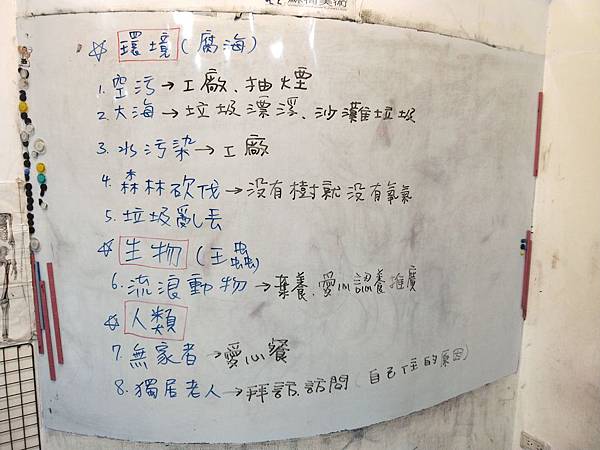 ☆ 環境(腐海)
1. 空污→工廠、抽煙
2. 大海→垃圾漂浮、沙灘垃圾
3. 水污染→工廠
4. 森林砍伐→没有樹就没有氧氣
5. 垃圾亂丟
☆ 生物(王蟲)
6. 流浪動物→棄養、愛心認養推廣
☆ 人類
7. 無家者→愛心餐
8. 獨居老人→拜訪、訪問(自己住的原因)